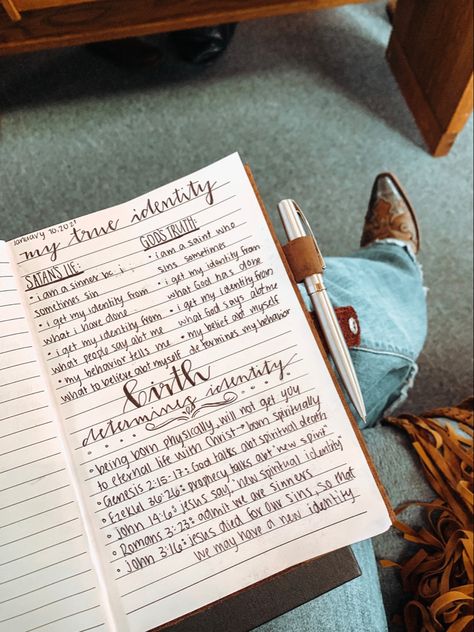 January 10, 2021
my true identity
SATANS LIE:
• i am a sinner bc i
sometimes sin
• i get my identity from
what i have done
• i get my identity from
what people say abt me
• my behavior tells me
what to believe abt myself
GODS TRUTH:
• i am a saint who
sins sometimes
• i get my identity from
what God has done
• i get my identity from
what God says abt me
• my belief abt myself
determines my behavior
birth
determines identity.
• being born physically, will not get you
to eternal life with Christ → born spiritually
• Genesis 2:15-17: God talks abt spiritual death
• Ezekiel 36:26: prophecy talks abt "new spirit"
• John 14:6: Jesus say, "new spiritual identity"
• Romans 3:23: admit we are sinners
• John 3:16: Jesus died for our sins, so that
we may have a new identity